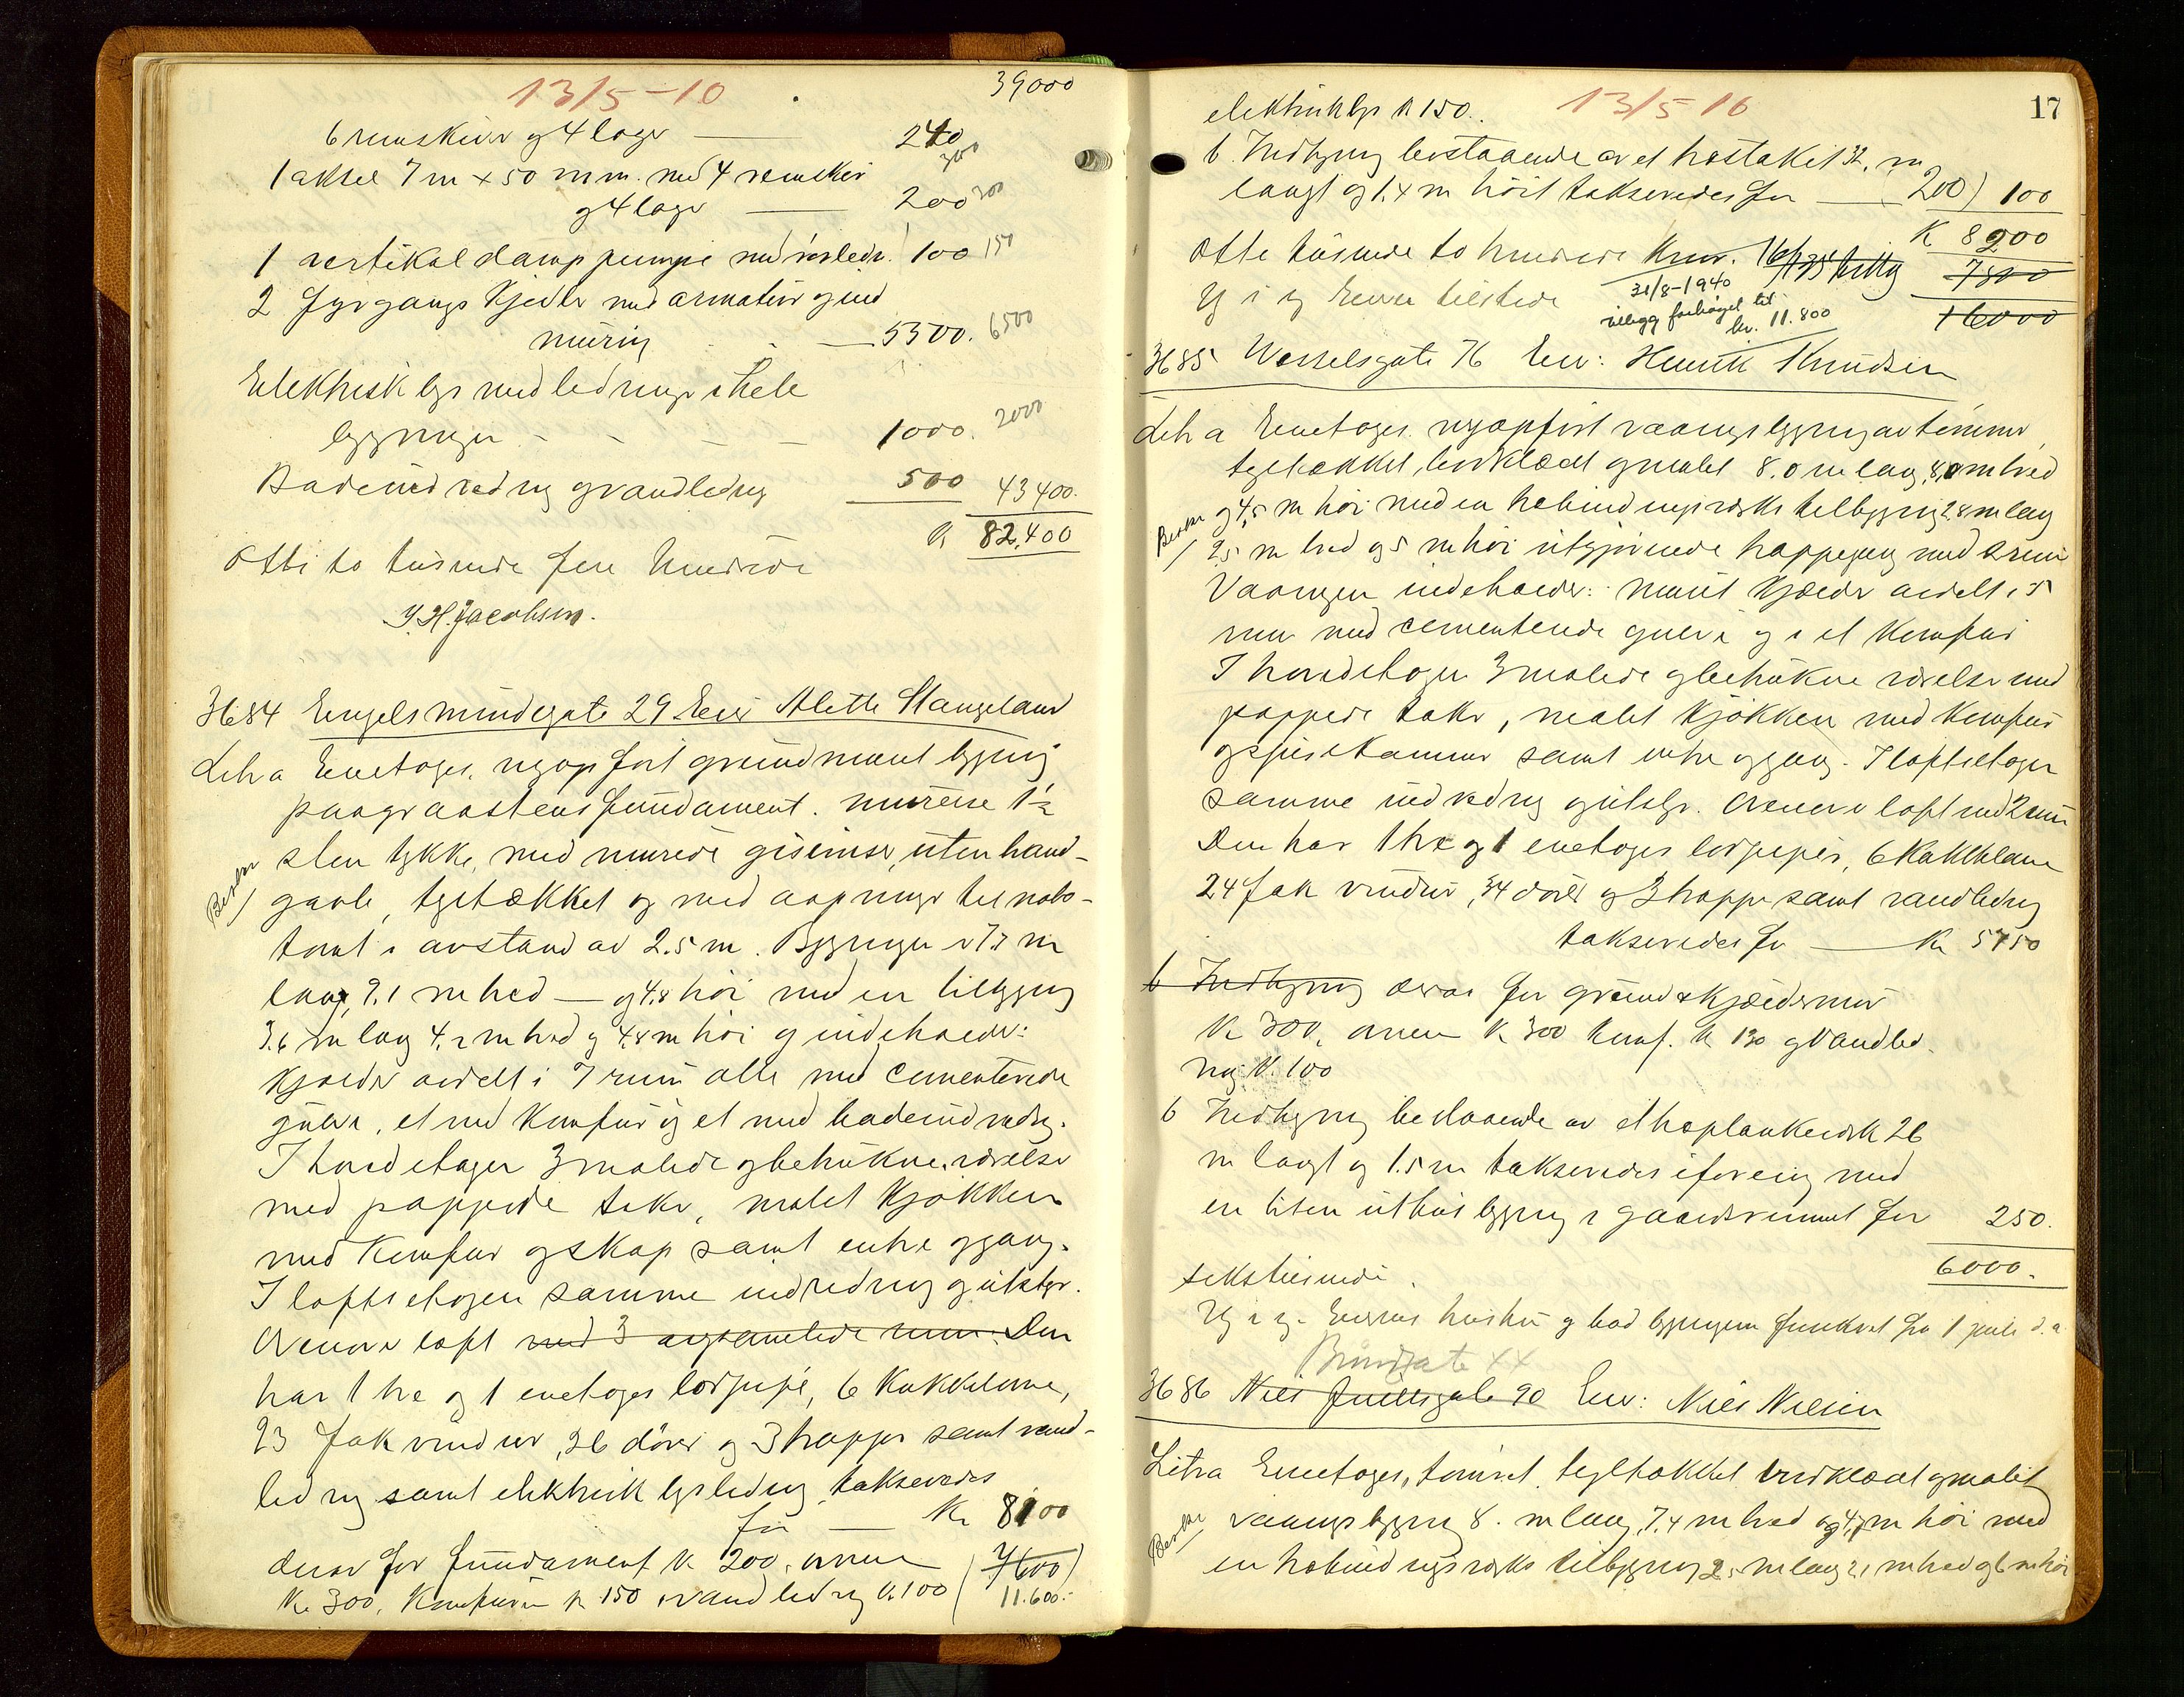 13/5-10
39000
6 remskiver og 4 lager — 240
300
1 aksel 7 m × 50 mm. med 4 remskiv
og 4 lager — 200 300
1 vertikal damppumpe med rörledn. 100 150
2 fyrgangs kjedler med armatur og ind
muring — 5500. 6500
Elektrisk lys med ledninger i hele
bygningen - - - — 1000. 2000
Badeindredning og vandledning 500 43400.
K 82,400
Otti to tusinde fire hundrede
J. H. Jacobsen.
3684 Engelsmindegate 29 Eier Alette Stangeland
Litr a Enetages, nyopfört grundmuret bygning
paa graastens fundament. murene 1½
Besktn
sten tykke, med murede gesimser, uten brand-
gavle, tegltækket og med aapninger til nabo-
tomt i avstand av 2.5 m. Bygningen er 7.3 m
lang, 9.1 m bred — og 4.8 höi med en tilbygning
3.6 m lang 4.2 m bred og 4.8 m höi og indeholder:
Kjælder avdelt i 7 rum alle med cementerede
gulve, et med komfur og et med badeindredng.
I hovedetagen 3 malede og betrukne værelser
med pappede takr, malet kjökken
med komfur og skap samt entre og gang.
I loftsetagen samme indredning og utstyr.
Övenover loft med 3 avpanelede rum. Den
har 1 tre og 1 enetages lodpipe, 6 kakkelovne,
23 fak vinduer, 26 dörer og 3 trapper samt vand-
ledning samt elektrisk lysledning, takseredes
for — Kr 8100
derav for fundament K. 200, ovnene (7600)
Kr. 300, Komfuren K 150 vandledning K. 100 ( 11.600.-
13/5 10
17
elektrisk lys K 150.
b. Indhegning bestaaende av et træstakit 32, m
langt og 1.4 m höit takseredes for — 200) 100
K 8200
Otte tusinde to hundrede Kron. 7800
16000
31/8-1940
tillegg forhöyet til
kr. 11.800
3685 Wesselsgate 76 Eier: Henrik Knudsen
Litr a Enetages nyopfört vaaningsbygning av tömmer,
tegltækket, bordklædt og malet 8.0 m lang, 8,0 m bred
Besktn
og 4,5 m höi med en trebindingsverks tilbygning 2,8 m lang
2,5 m bred og 5 m höi utgjörende trappegang med 2 rum
Vaaningen indeholder: muret kjælder avdelt i 5
rum med cementerede gulve og i et komfur
I hovedetagen 3 malede og betrukne værelser med
pappede takr, malet kjökken med komfur
og spisekammer samt entre og gang. I loftsetagen
samme indredning og utstyr. Ovenover loft med 2 rum
Den har 1 tre og 1 enetages lodpiper, 6 kakkelovne
24 fak vinduer, 34 dörer og 3 trapper samt vandledning
takseredes for — Kr 5750
b Indhegning derav for grund & kjældermur
K 300, ovnene K 300 komf. K 130 og vandled-
ning K. 100
b Indhegning bestaaende av et træplankeverk 26
m langt og 1.5 m takseredes iforening med
en liten uthusbygning i gaardsrummet for 250.
6000.
seks tusinde.
Brandgate
3686 Niels Juelsgate 90 Eier: Niels Nielsen
Litra Enetages, tömret, tegltækket bordklædt og malet
Besktn
vaaningsbygning 8. m lang, 7,4 m bred og 4,5 m höi med
en trebindingsverks tilbygning 2,5 m lang 2,1 m bred og 6 m höi